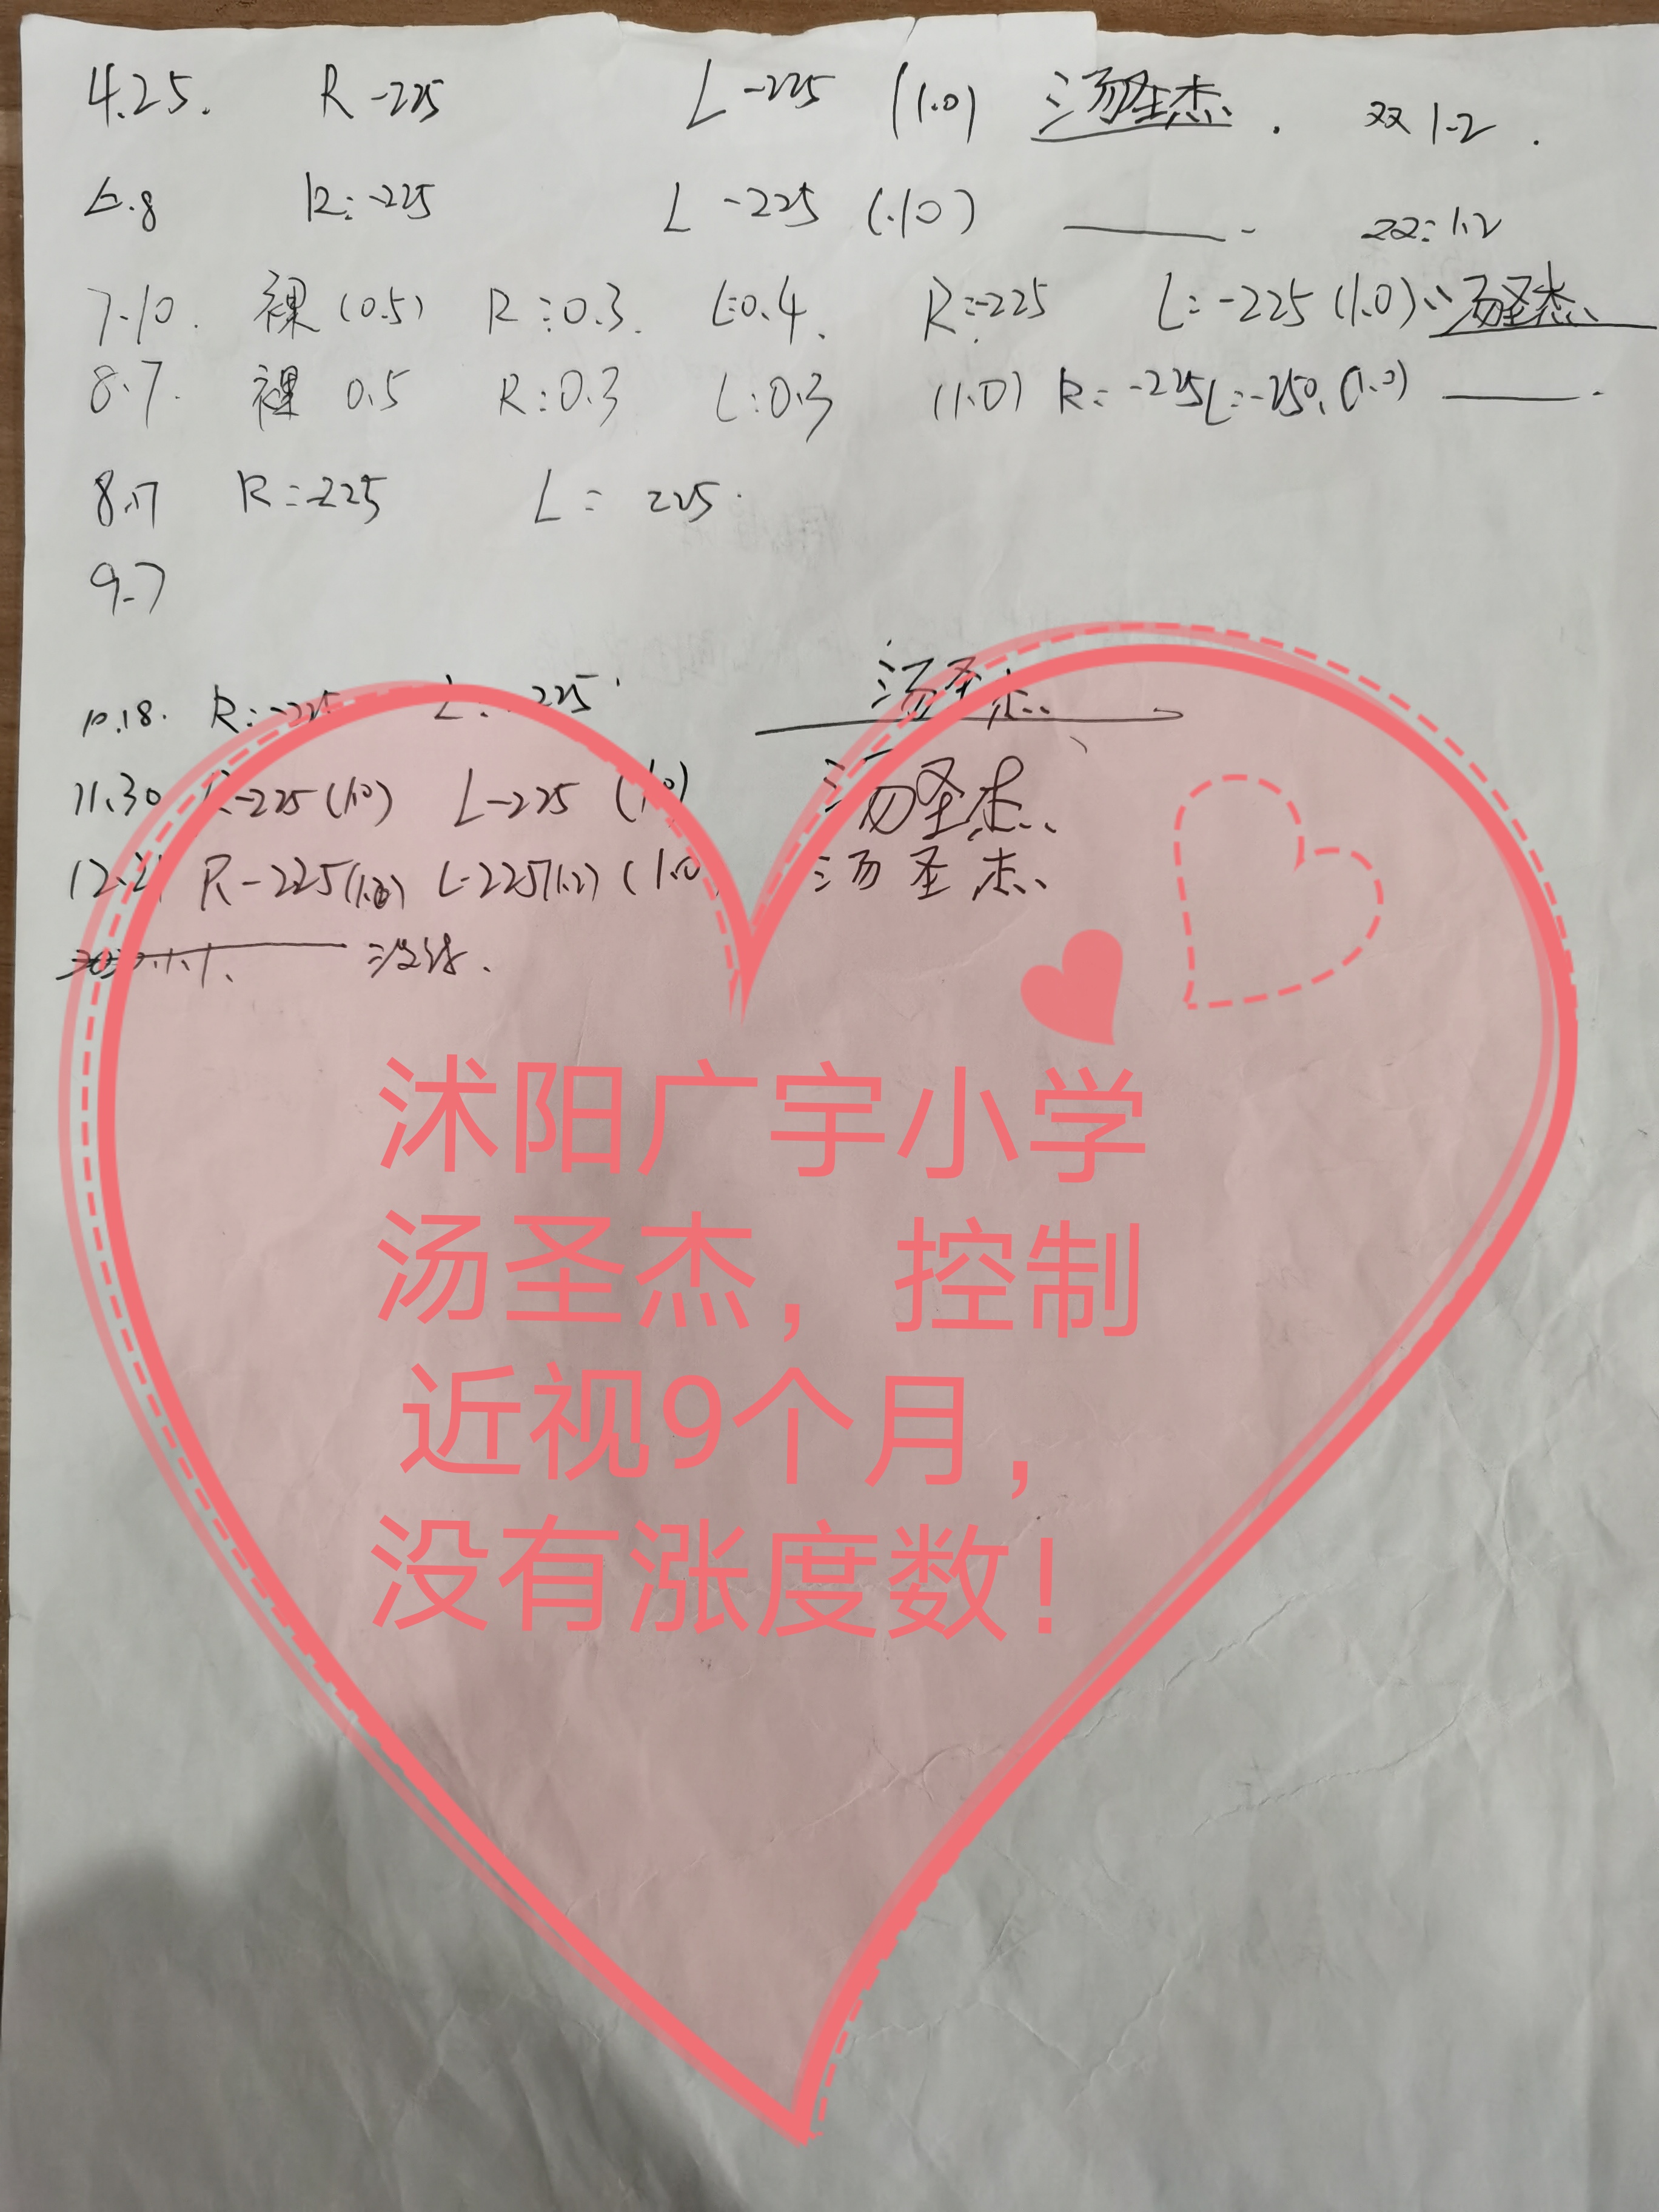 4.25. R -225 L -225 (1.0) 汤圣杰. 双 1.2.
6.8 R: -225 L -225 (1.0) 双: 1.2
7.10. 裸 (0.5) R: 0.3. L: 0.4. R: -225 L: -225 (1.0) 汤圣杰
8.7. 裸 0.5 R: 0.3 L: 0.3 (1.0) R: -225 L: -250. (1.0)
8.17 R: -225 L: 225.
9.7
10.18. R: -225 L: -225 汤圣杰
11.30 R -225 (1.0) L -225 (1.0) 汤圣杰
12.21 R -225 L -225 (1.2) (1.0) 汤圣杰
沭阳广宇小学
汤圣杰，控制
近视9个月，
没有涨度数！